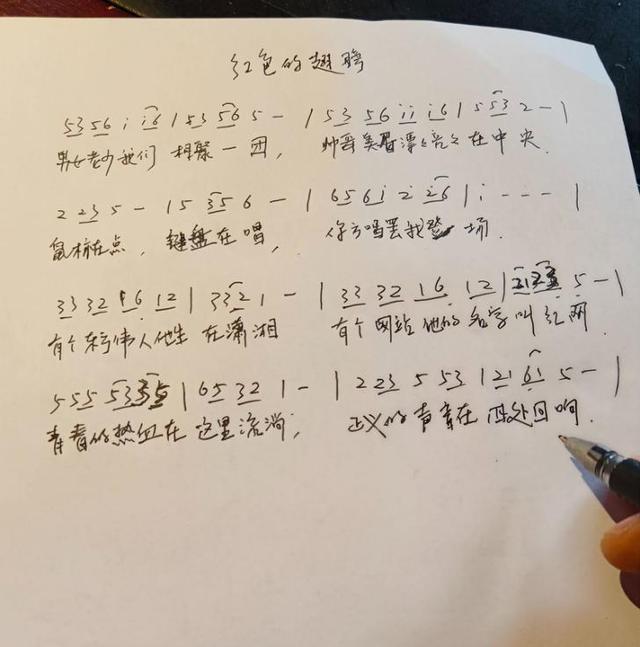 红色的翅膀
53 56 i i6 | 53 56 5 - | 53 56 ii i6 | 5 53 2 - |
男女老少我们 相聚一团， 帅哥美眉漂漂亮亮在中央.
2 23 5 - | 5 35 6 - | 65 6i 2 26 | i - - - |
鼠标在点， 键盘在唱， 你方唱罢我登场.
33 32 16 12 | 3 32 1 - | 33 32 16 12 | 5 - |
有个东方伟人他生在潇湘 有个网站他的名字叫红网
5 55 53 | 65 32 1 - | 2 23 5 53 | 21 61 5 - |
青春的热血在这里流淌； 正义的声音在四处回响.